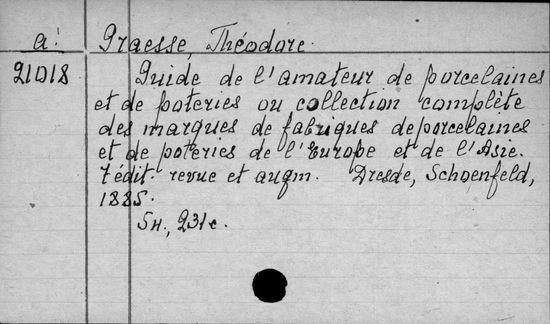 a!
Graesse, Théodore.
21018
Guide de l'amateur de porcelaines
et de poteries ou collection complète
des marques de fabriques de porcelaines
et de poteries de l'Europe et de l'Asie.
7 édit. revue et augm. Dresde, Schoenfeld,
1885.